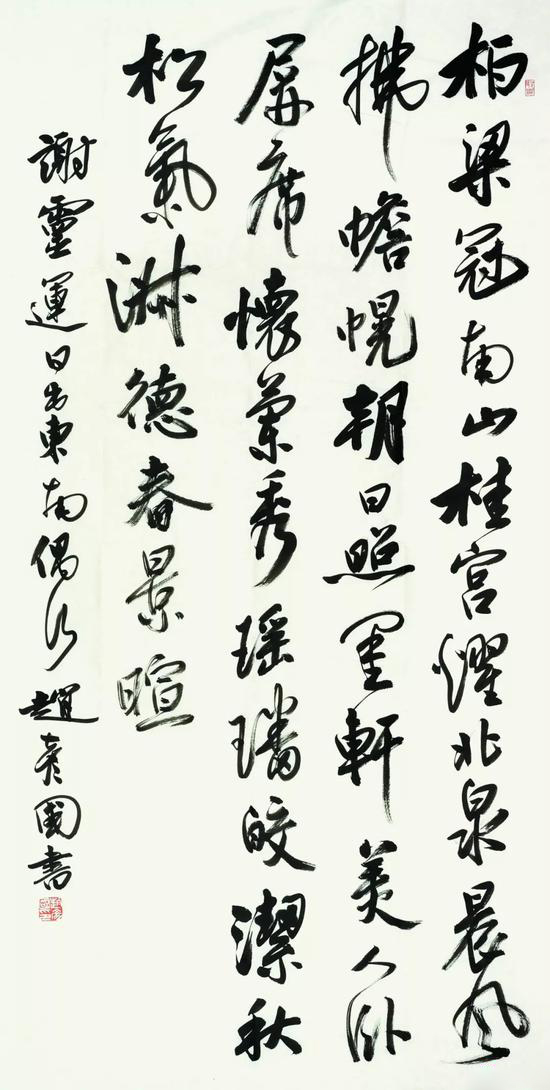 柏梁冠南山桂宫燿北泉晨風
拂幨幌朝日照閨軒美人卧
屏席懷蘭秀瑶璠皎潔秋
松氣淑德春景暄
謝靈運日出東南偶行趙彦國書